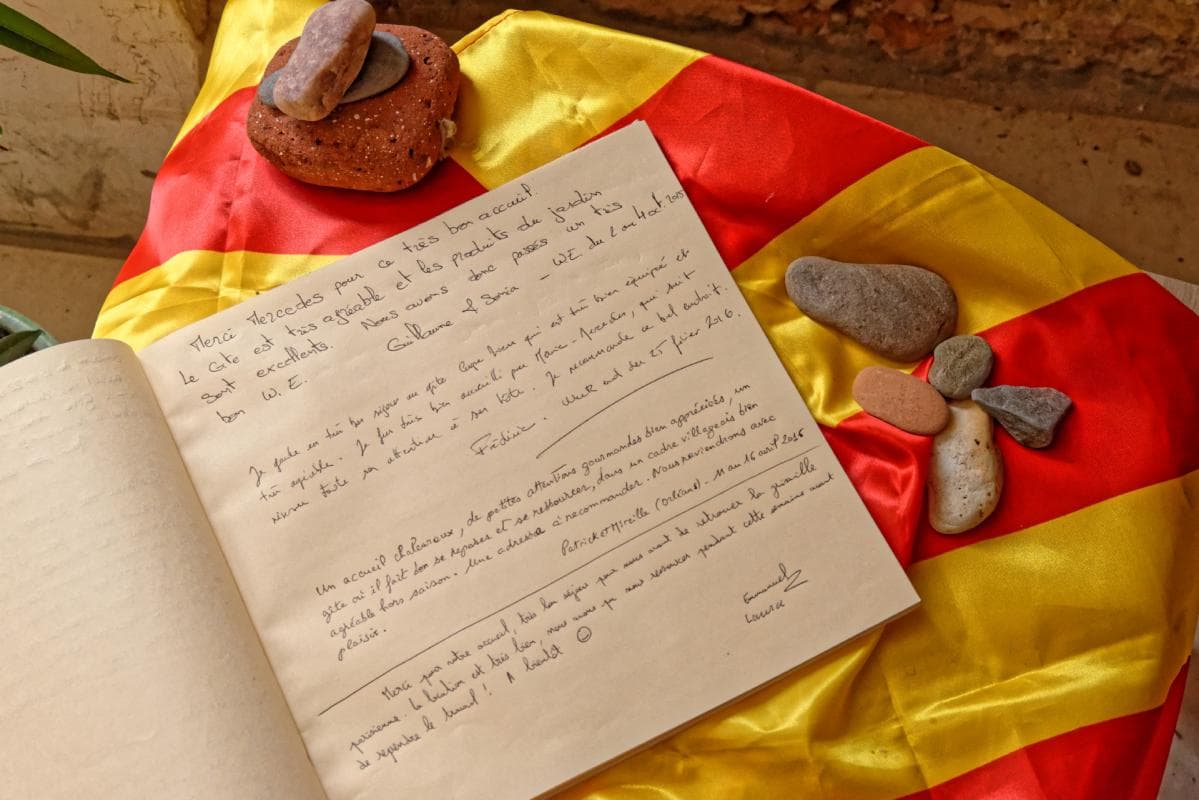 Merci Mercedes pour ce très bon accueil.
Le Gîte est très agréable et les produits du jardin
sont excellents. Nous avons donc passés un très
bon W.E. Guillaume & Sonia - WE du 2 au 4 oct. 2015
Je garde un très bon séjour au gîte bien qui est très bien équipé et
très agréable. Je fus très bien accueilli par Marie-Mercedes, que suit
toute son attention à ses hôtes. Je recommande ce bel endroit.
Frédéric. Week end du 25 février 2016.
Un accueil chaleureux, de petites attentions gourmandes bien appréciées, un
gîte où il fait bon se reposer et se ressourcer, dans un cadre villageois bien
agréable hors saison. Une adresse à recommander. Nous reviendrons avec
plaisir. Patrick et Mireille (Orléans). 11 au 16 avril 2016
Merci pour votre accueil, très bon séjour pour nous avant de retrouver la grisaille
parisienne. La location est très bien, nous avons pu nous ressourcer pendant cette semaine avant
de reprendre le travail ! A bientôt
Emmanuel
Laura